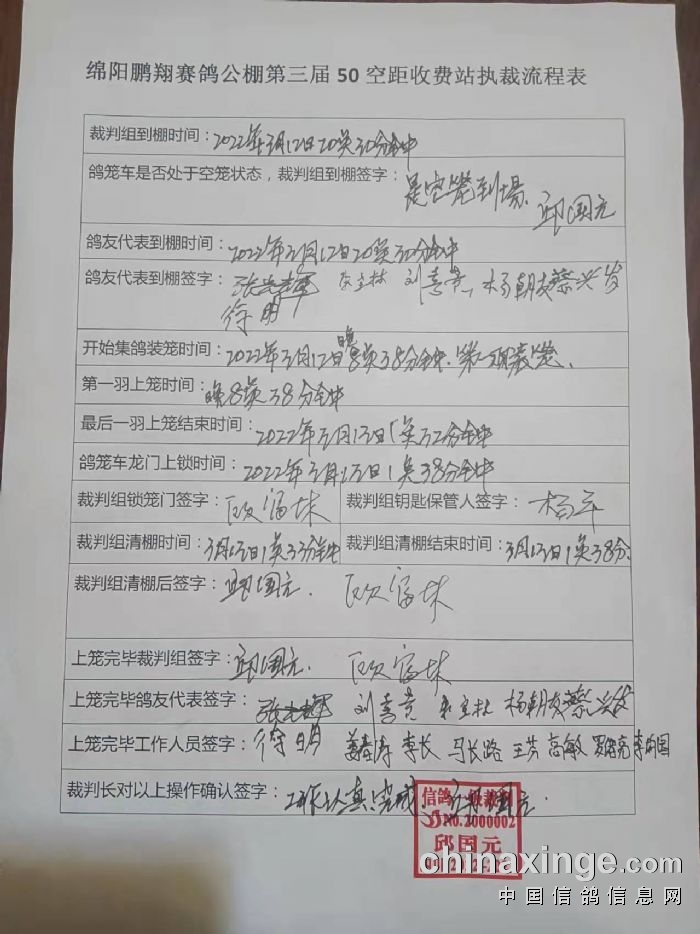 绵阳鹏翔赛鸽公棚第三届50空距收费站执裁流程表
裁判组到棚时间：2022年3月12日20点30分钟
鸽笼车是否处于空笼状态，裁判组到棚签字：是空笼到場. 邱国元
鸽友代表到棚时间：2022年3月12日20点30分钟
鸽友代表到棚签字： 刘喜贵 杨朝友 蔡兴发
徐明
开始集鸽装笼时间：2022年3月12日晚8点38分钟.
第一羽上笼时间：晚8点38分钟
最后一羽上笼结束时间：2022年3月13日1点32分钟
鸽笼车龙门上锁时间：2022年3月13日1点38分钟
裁判组锁笼门签字：欧富林 裁判组钥匙保管人签字：杨军
裁判组清棚时间：3月13日1点33分钟 裁判组清棚结束时间：3月13日1点38分.
裁判组清棚后签字：邱国元. 欧富林
上笼完毕裁判组签字：邱国元. 欧富林
上笼完毕鸽友代表签字： 刘喜贵 杨朝友 蔡兴发
上笼完毕工作人员签字：徐明 姜春涛 李长 马长路 王芬 高敏
裁判长对以上操作确认签字：工作认真完成. 邱国元.
信鸽一级裁判
NO.2000002
邱国元
chinaxinge.com
中国信鸽信息网